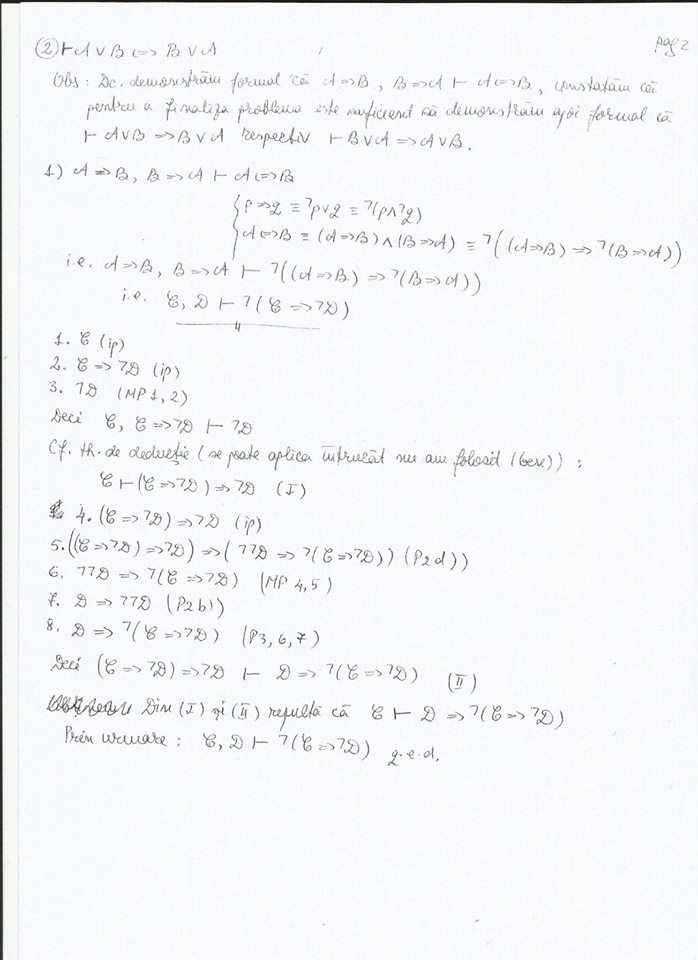 pag 2
② ⊢ A ∨ B <=> B ∨ A
Obs : Dc. demonstrăm formal că A => B , B => A ⊢ A <=> B , constatăm că
pentru a finaliza problema este suficient să demonstrăm apoi formal că
⊢ A∨B => B∨A respectiv ⊢ B∨A => A∨B.
1) A => B, B => A ⊢ A <=> B
p => q ≡ ꓶp∨q ≡ ꓶ(p∧ꓶq)
A <=> B ≡ (A=>B) ∧ (B=>A) ≡ ꓶ((A=>B) => ꓶ(B=>A))
i.e. A => B, B => A ⊢ ꓶ((A=>B) => ꓶ(B=>A))
i.e. C, D ⊢ ꓶ(C => ꓶD)
1. C (ip)
2. C => ꓶD (ip)
3. ꓶD (MP 1, 2)
Deci C, C => ꓶD ⊢ ꓶD
Cf. th. de deducție (se poate aplica întrucât nu am folosit (Gen)) :
C ⊢ (C => ꓶD) => ꓶD (I)
4. (C => ꓶD) => ꓶD (ip)
5. ((C => ꓶD) => ꓶD) => (ꓶꓶD => ꓶ(C => ꓶD)) (P2d))
6. ꓶꓶD => ꓶ(C => ꓶD) (MP 4,5)
7. D => ꓶꓶD (P2b))
8. D => ꓶ(C => ꓶD) (P3, 6, 7)
Deci (C => ꓶD) => ꓶD ⊢ D => ꓶ(C => ꓶD) (II)
Din (I) și (II) rezultă că C ⊢ D => ꓶ(C => ꓶD)
Prin urmare : C, D ⊢ ꓶ(C => ꓶD) q.e.d.